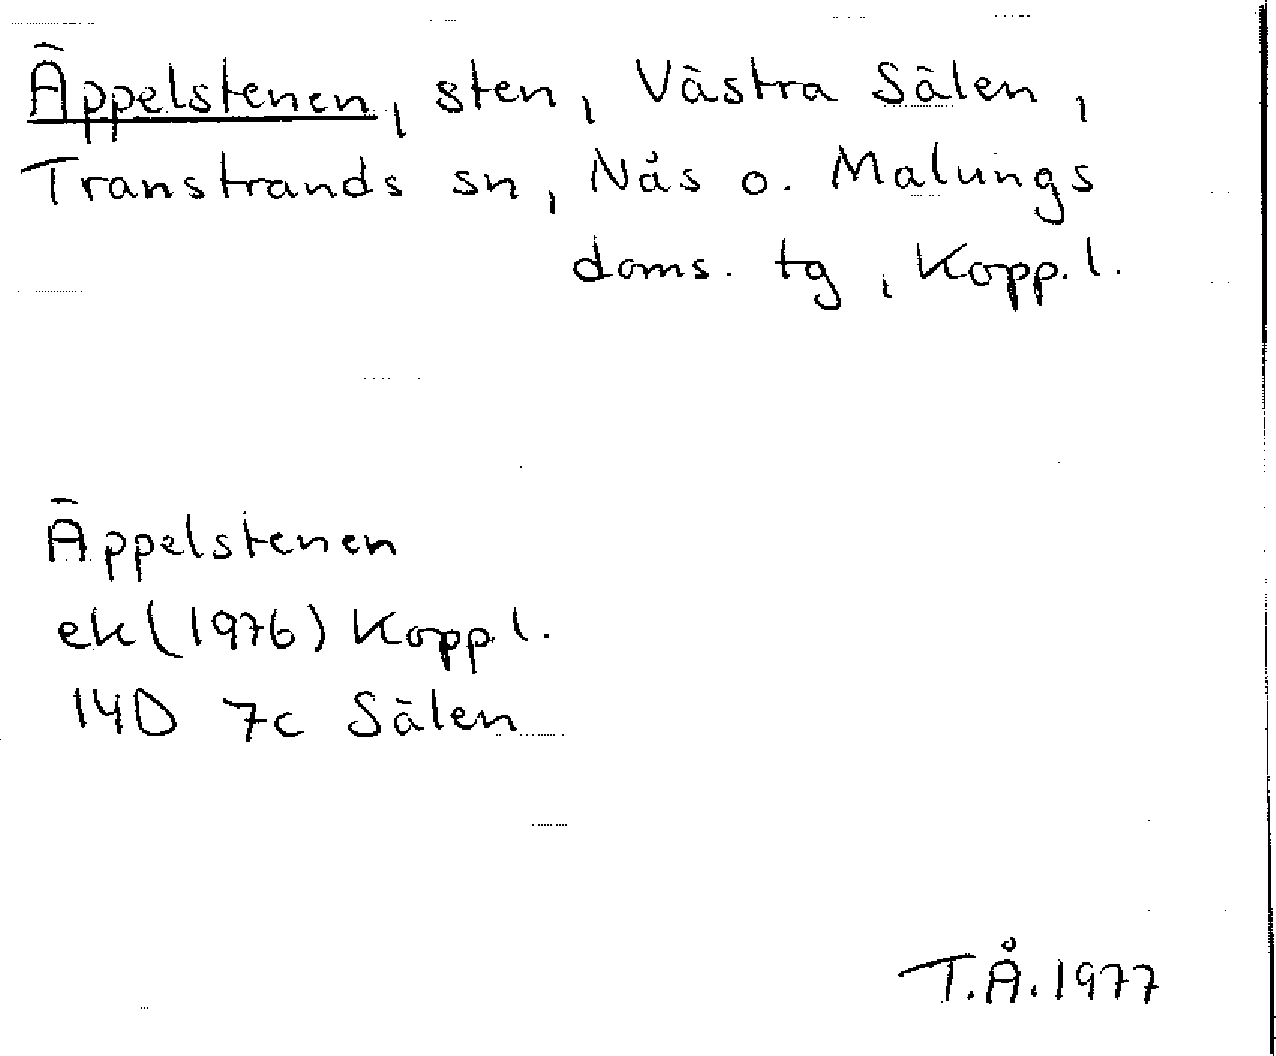 Äppelstenen, sten, Västra Sälen,
Transtrands sn, Nås o. Malungs
doms. tg, Kopp. l.
Äppelstenen
ek (1976) Kopp l.
14D 7c Sälen
T.Å. 1977